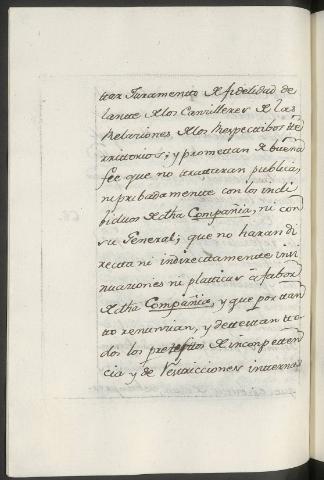 ttar Juramento de fidelidad de
lante de los Canzilleres de las
Relaciones, de los Respectibos te
rritorios; y promettan de buena
fee que no trattaran publica,
ni pribadamente con los indi
biduos de dha Compañia, ni con
su General; que no haran di
recta ni indirectamente insi
nuaziones ni platticas a fabor
de dha Compañia, y que por tan
to renunzian, y dettestan tto
dos los prettestos de incompetten
cia y de restricciones internas